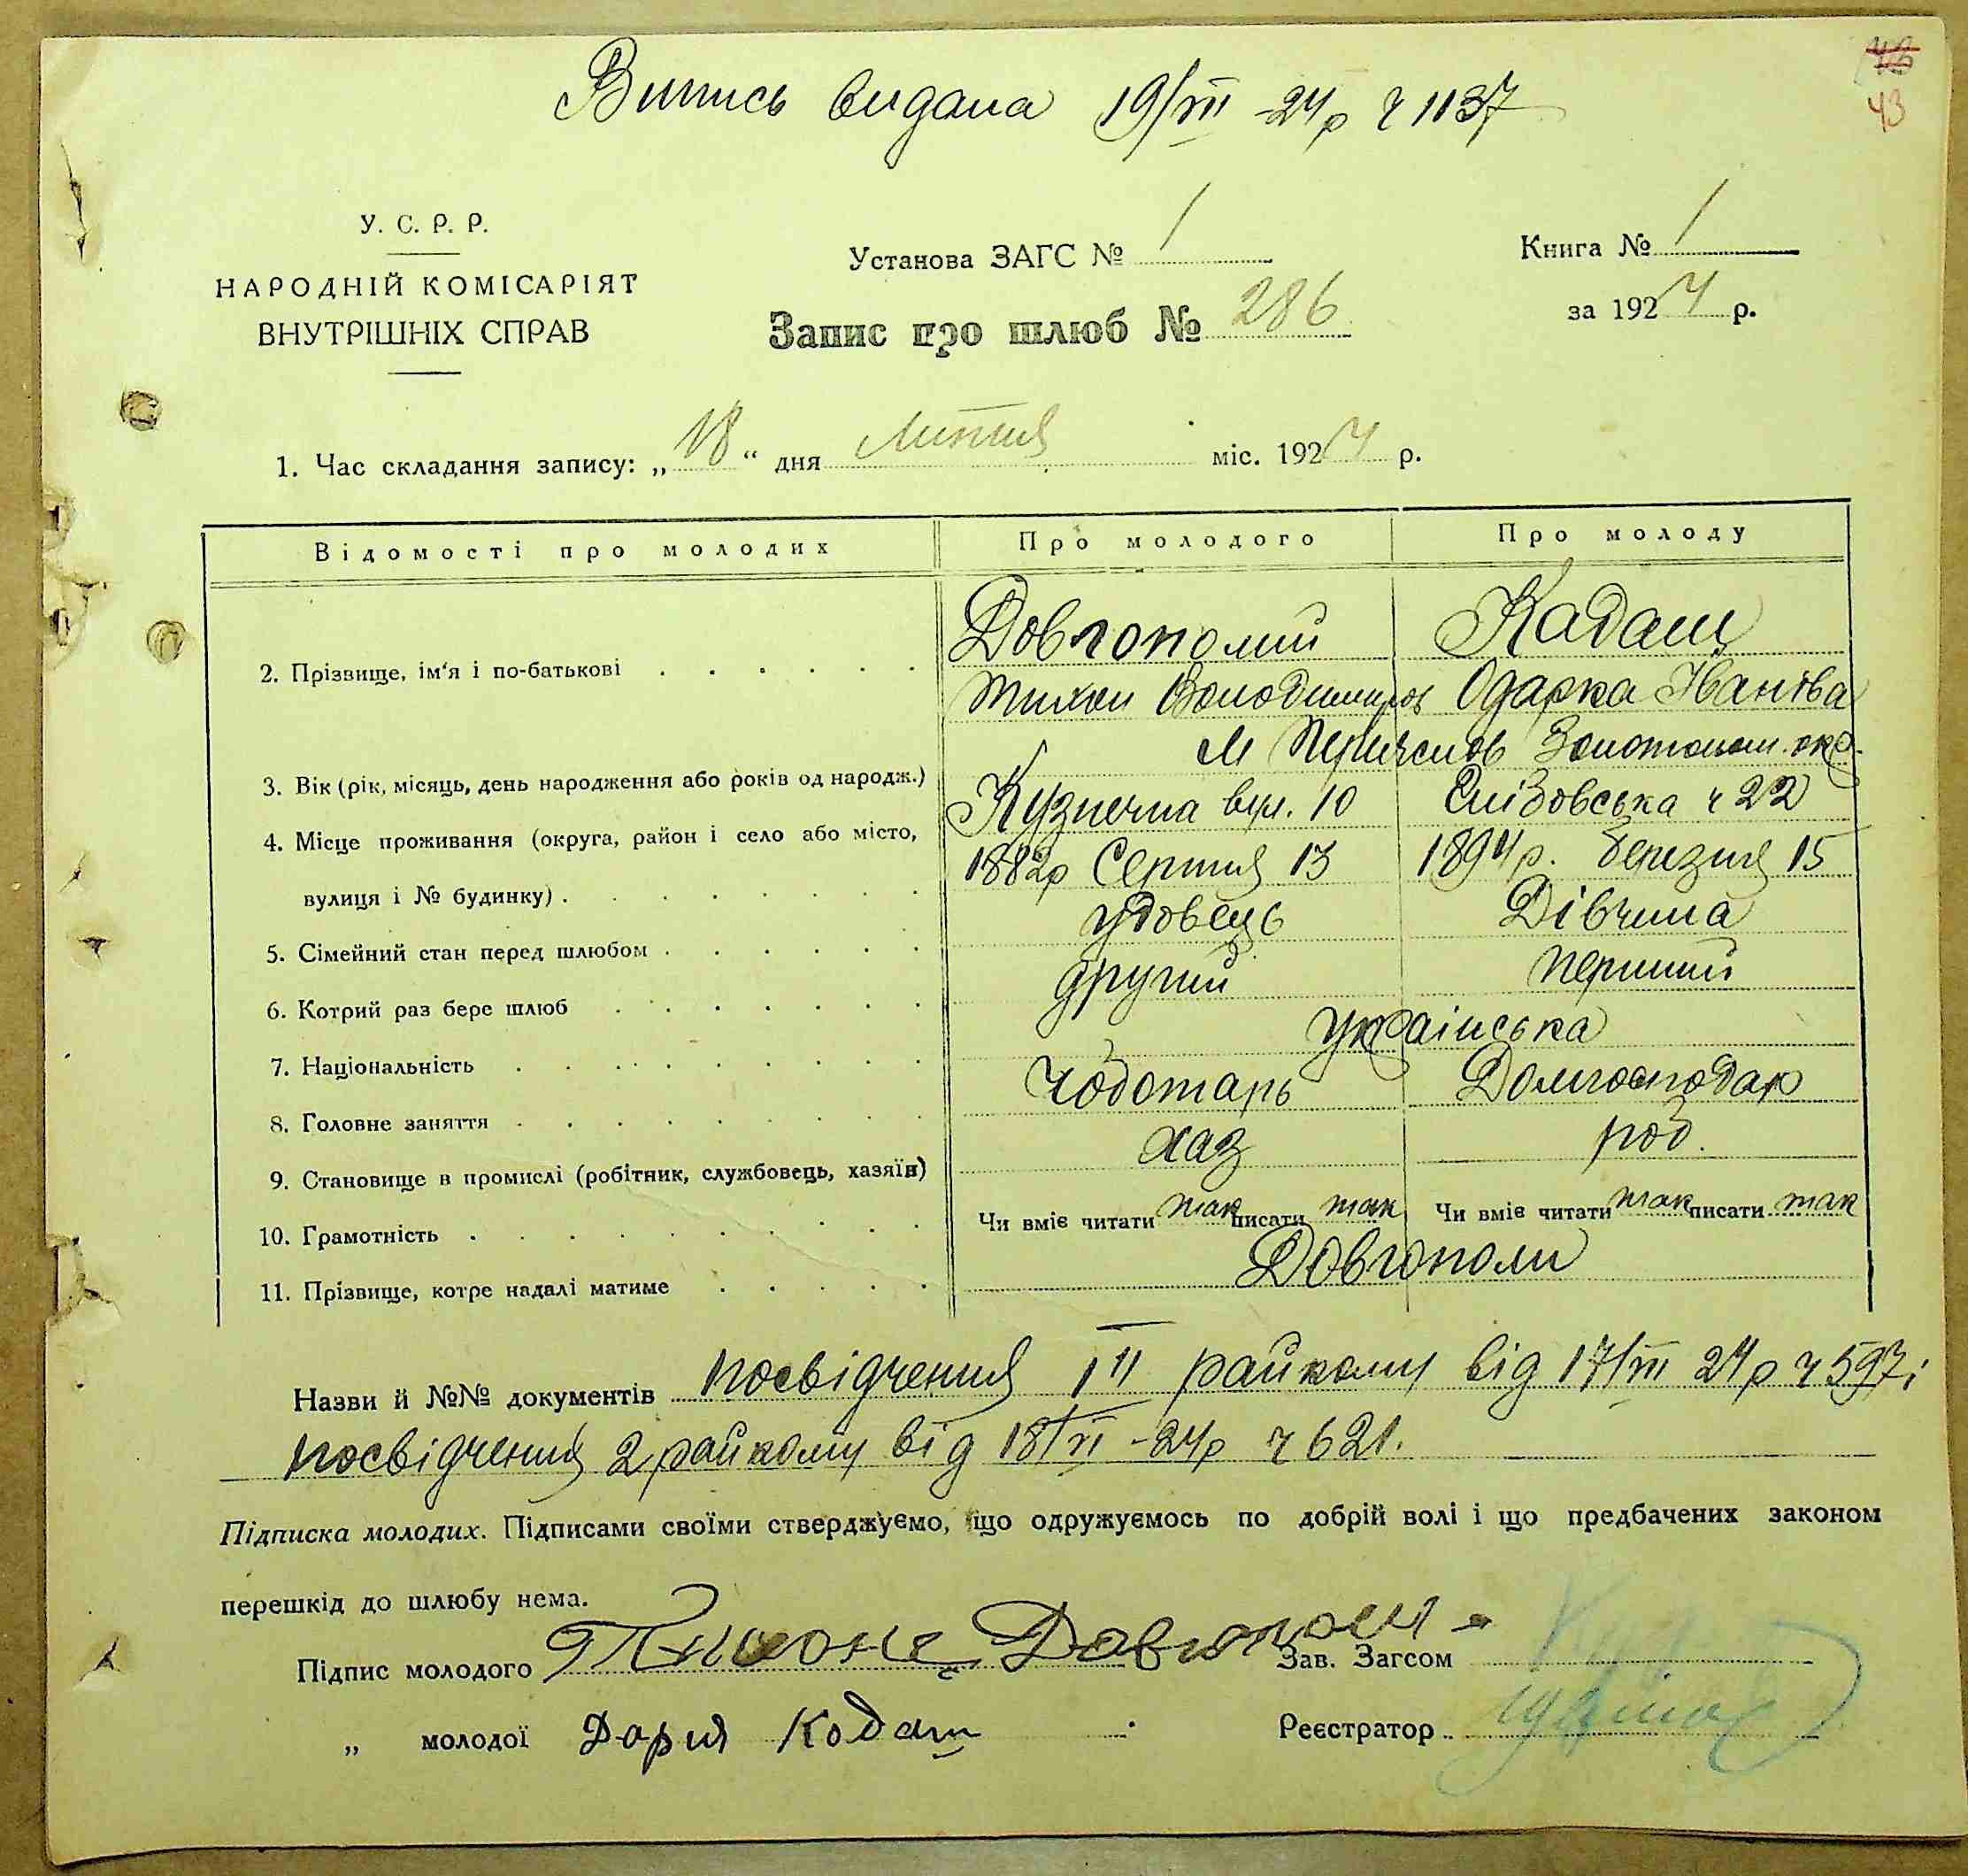 43
Випись видана 19/VII -24р ч 1137
У. С. Р. Р.
НАРОДНІЙ КОМІСАРІЯТ
ВНУТРІШНІХ СПРАВ
Установа ЗАГС № 1
Запис про шлюб № 286
Книга № 1
за 1924 р.
1. Час складання запису: „18“ дня Липня міс. 1924 р.
Відомості про молодих Про молодого Про молоду
2. Прізвище, ім'я і по-батькові Довгополий Кадащ
Тихон Володимиров Одарка Іванівна
м Переяслов Золотонош. окр.
3. Вік (рік, місяць, день народження або років од народж.) Кузнечна вул. 10 ч 22
4. Місце проживання (округа, район і село або місто, 1882р Серпня 13 1894р. березня 15
вулиця і № будинку) удовець Дівчина
5. Сімейний стан перед шлюбом другий перший
6. Котрий раз бере шлюб українська
7. Національність Чоботарь Домгосподар
8. Головне заняття хаз роб.
9. Становище в промислі (робітник, службовець, хазяїн)
10. Грамотність Чи вміє читати так писати так Чи вміє читати так писати так
11. Прізвище, котре надалі матиме Довгополи
Назви й №№ документів посвідчення 1 райкому від 17/VII 24р ч 597;
посвідчення 2 райкому від 18/VI -24р ч 621.
Підписка молодих. Підписами своїми стверджуємо, що одружуємось по добрій волі і що предбачених законом
перешкід до шлюбу нема.
Підпис молодого Тихонъ Довгополи Зав. Загсом
„ молодої Дарія Кодаш Реєстратор